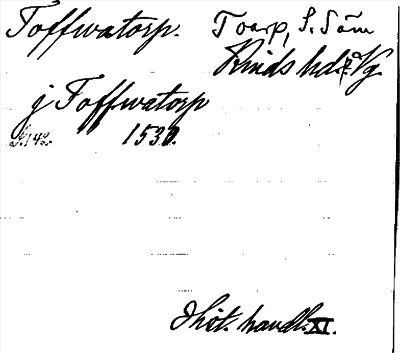 Toffwatorp. Toarp, S. Säm
Kinds hd, Vg.
j Toffwatorp
s. 142. 1530.
Hist. handl. XI.